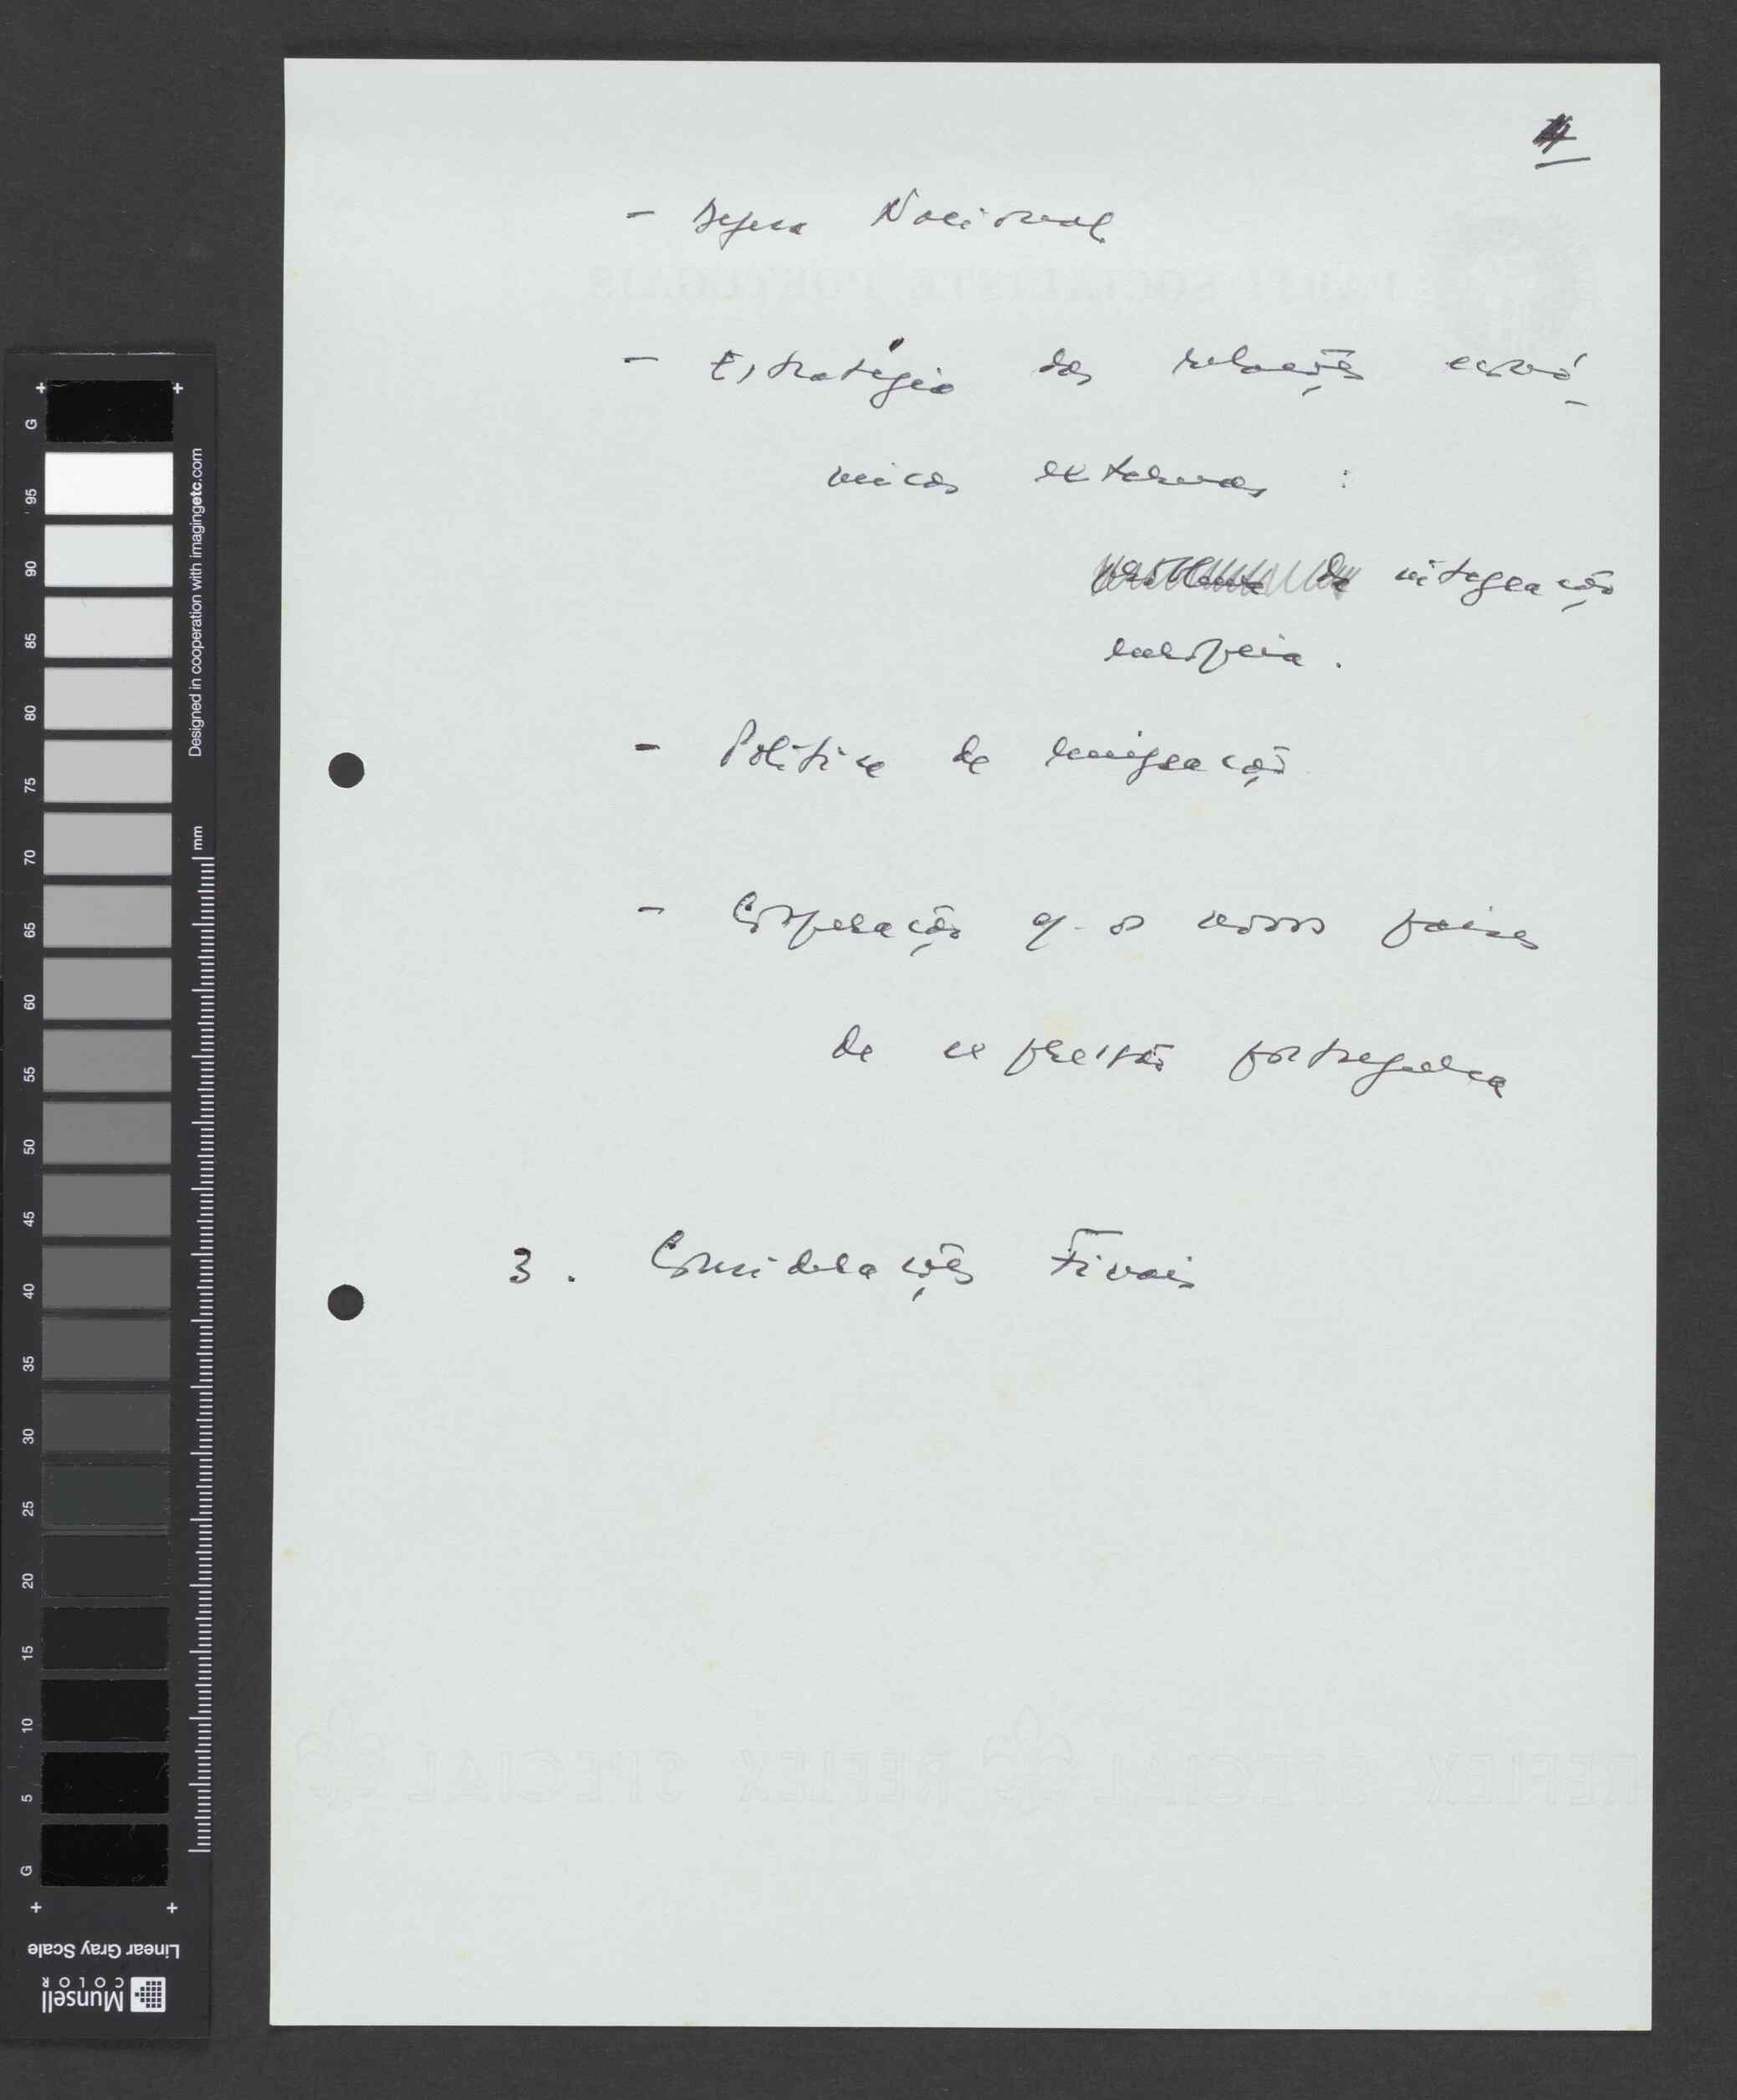 4
- Defesa Nacional
- Estratégia das relações econó-
micas externas :
problema da integração
europeia.
- Política de emigração
- Cooperação c/ os novos países
de expressão portuguesa
3. Considerações Finais
PARTI SOCIALISTE PORTUGAIS
REFLEX SPECIAL REFLEX SPECIAL
G 95 90 85 80 75 70 65 60 55 50 45 40 35 30 25 20 15 10 5 G
Designed in cooperation with imagingetc.com
mm
Linear Gray Scale
Munsell
COLOR